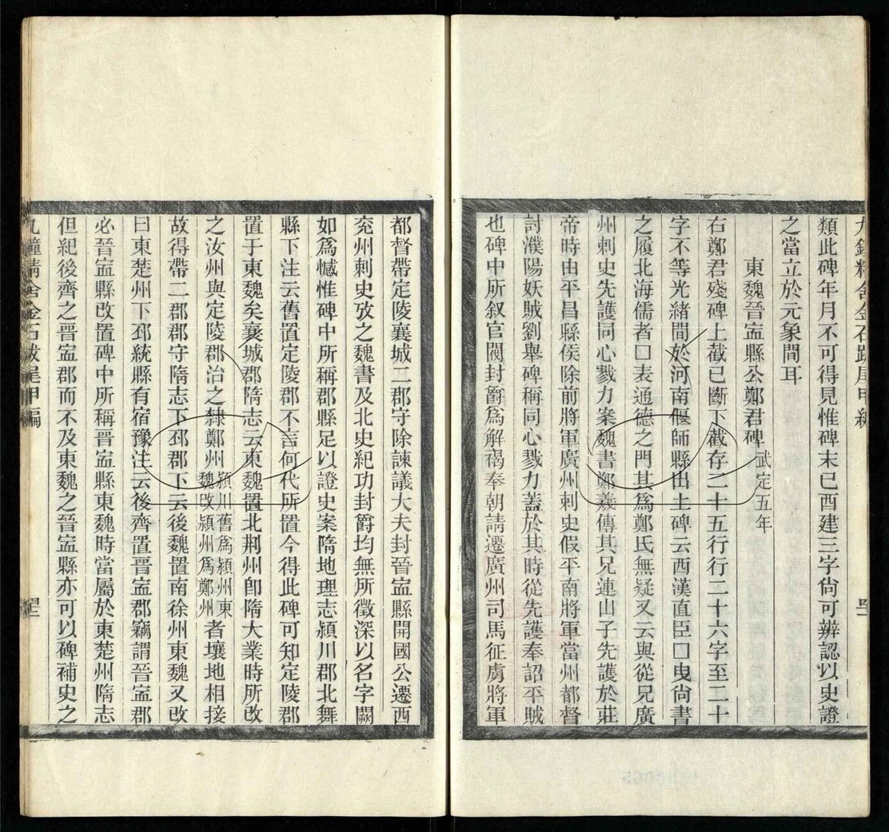 九鐘精舍金石跋尾甲編
類此碑年月不可得見惟碑末已酉建三字尙可辨認以史證
之當立於元象間耳
東魏晉寍縣公鄭君碑武定五年
右鄭君殘碑上截已斷下截存二十五行行二十六字至二十
字不等光緒間於河南偃師縣出土碑云西漢直臣口曳尙書
之履北海儒者口表通德之門其爲鄭氏無疑又云與從兄廣
州刺史先護同心戮力案魏書鄭羲傳其兄連山子先護於莊
帝時由平昌縣侯除前將軍廣州刺史假平南將軍當州都督
討濮陽妖賊劉舉碑稱同心戮力蓋於其時從先護奉詔平賊
也碑中所叙官閥封爵爲解褐奉朝請遷廣州司馬征虜將軍
都督帶定陵襄城二郡守除諫議大夫封晉寍縣開國公遷西
兗州刺史攷之魏書及北史紀功封爵均無所徵深以名字闕
如爲憾惟碑中所稱郡縣足以證史案隋地理志潁川郡北舞
縣下注云舊置定陵郡不言何代所置今得此碑可知定陵郡
置于東魏矣襄城郡隋志云東魏置北荆州卽隋大業時所改
之汝州與定陵郡治之隸鄭州潁川舊爲潁州東魏改潁州爲鄭州者壤地相接
故得帶二郡郡守隋志下邳郡下云後魏置南徐州東魏又改
曰東楚州下邳統縣有宿豫注云後齊置晋寍郡竊謂晉寍郡
必晉寍縣改置碑中所稱晋寍縣東魏時當屬於東楚州隋志
但紀後齊之晋寍郡而不及東魏之晉寍縣亦可以碑補史之
九鐘精舍金石跋尾甲編